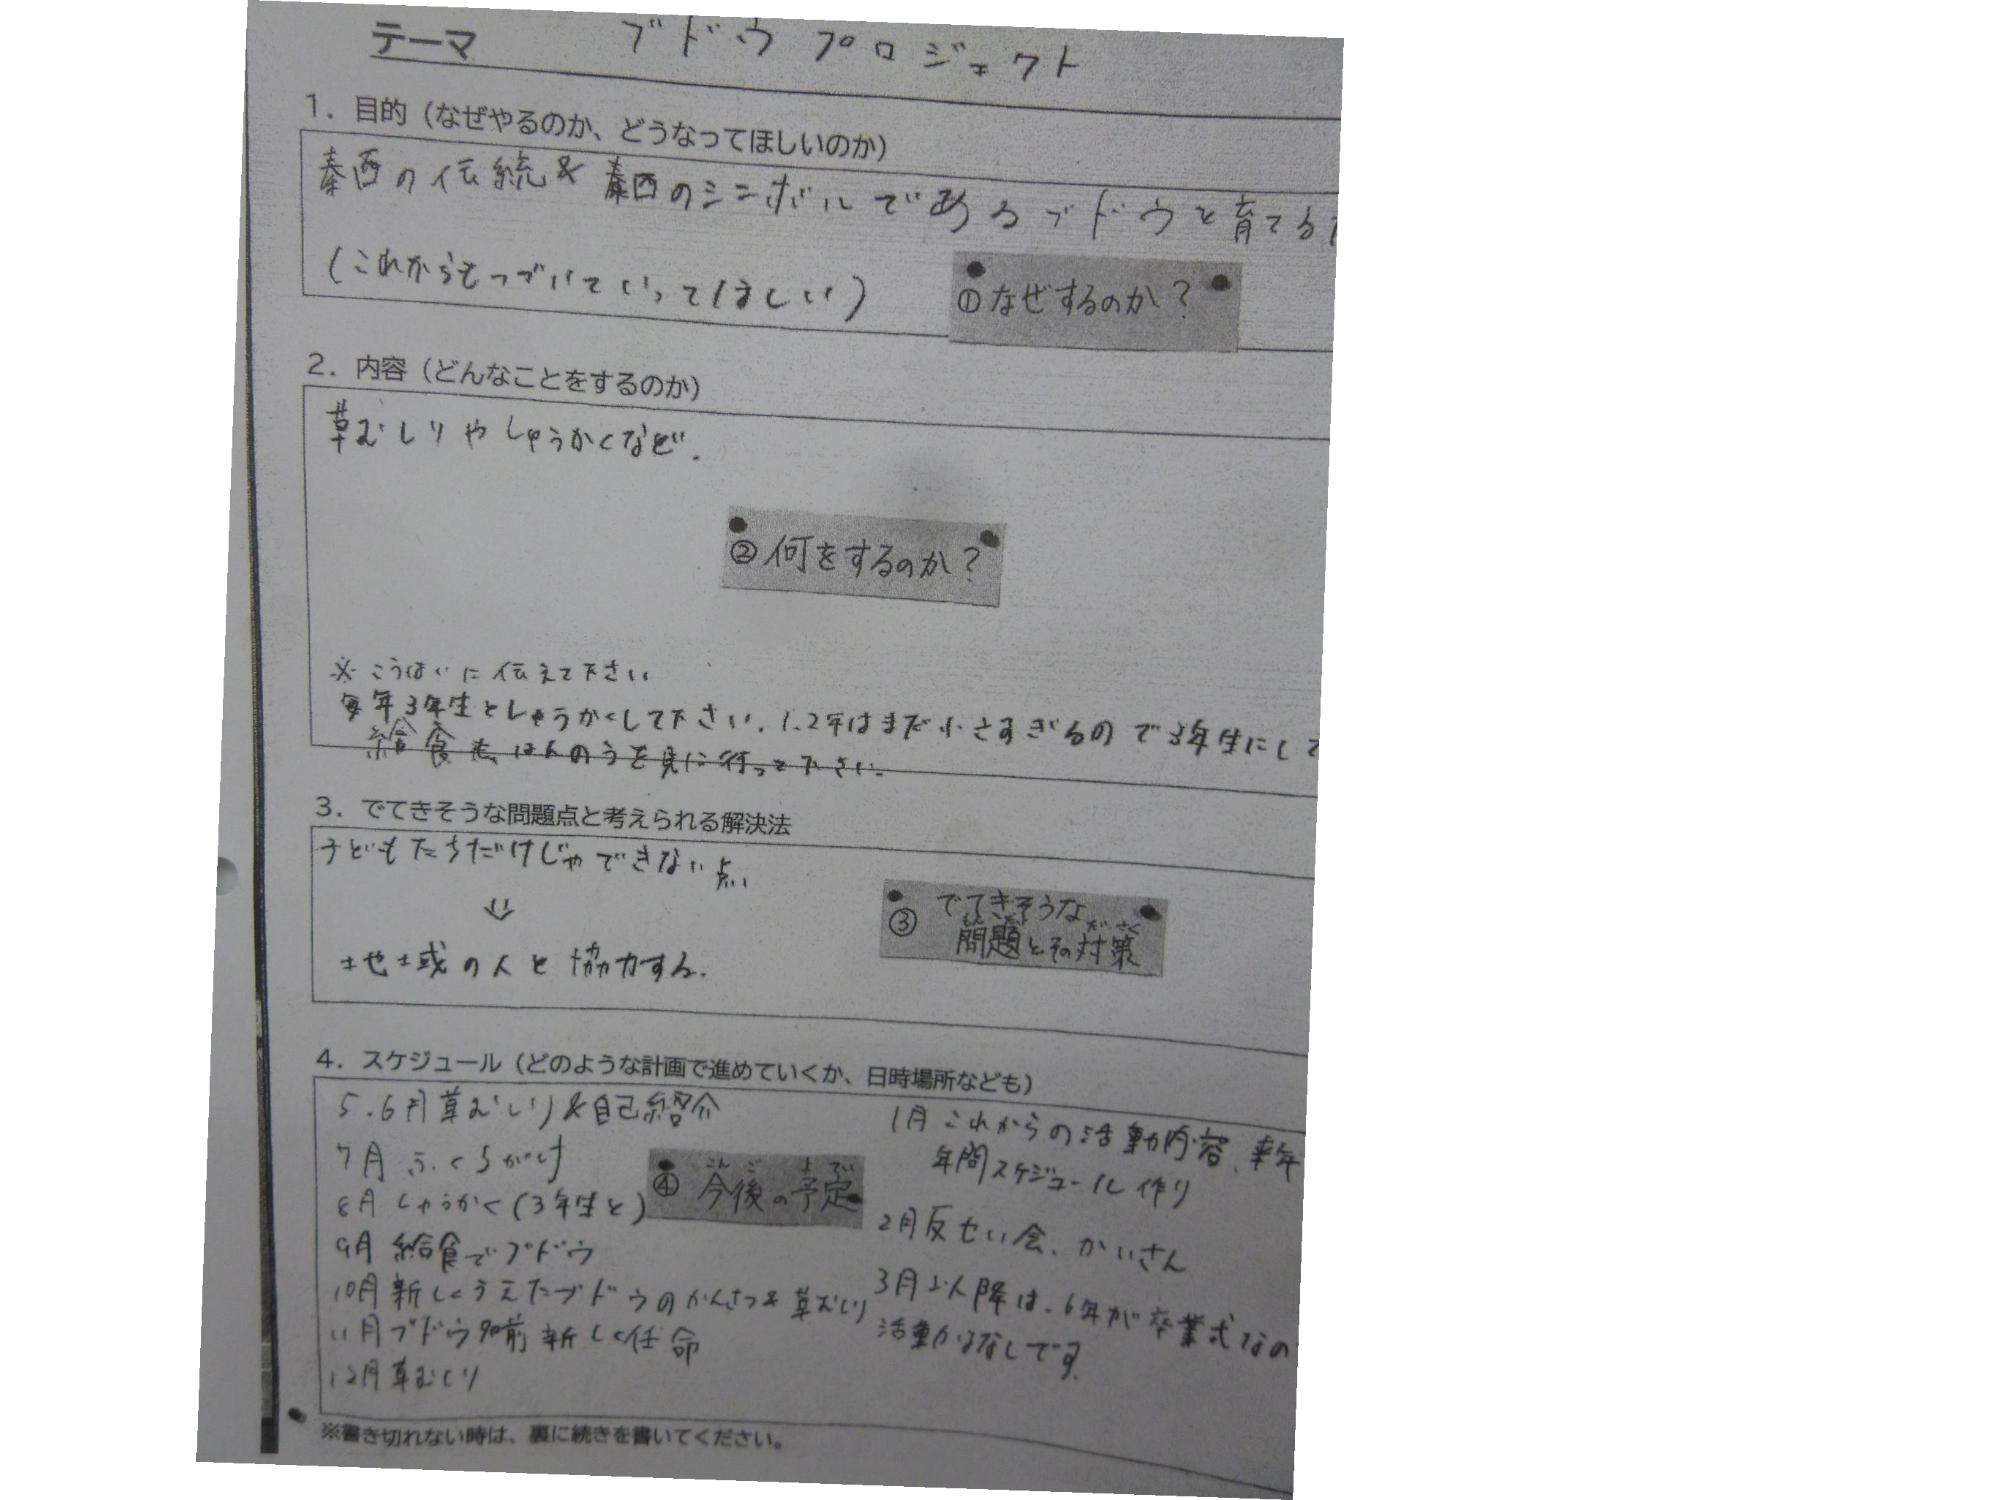 テーマ ブドウプロジェクト
1. 目的（なぜやるのか、どうなってほしいのか）
秦西の伝統&秦西のシンボルであるブドウを育てる
（これからもつづいていってほしい）
①なぜするのか?
2. 内容（どんなことをするのか）
草むしりやしゅうかくなど.
②何をするのか?
※こうはいに伝えて下さい
毎年3年生としゅうかくして下さい.1.2年はまだ小さすぎるので3年生にして
給食もほんのうを見に行って下さい.
3. でてきそうな問題点と考えられる解決法
子どもたちだけじゃできない点
⇓
地域の人と協力する.
③でてきそうな
問題とその対策
4. スケジュール（どのような計画で進めていくか、日時場所なども）
5.6月草むしり&自己紹介
7月ふくろがけ
8月しゅうかく(3年生と)
9月給食でブドウ
10月新しくうえたブドウのかんさつ&草むしり
11月ブドウ名前新しく任命
12月草むしり
④今後の予定
1月これからの活動内容、来年
年間スケジュール作り
2月反せい会、かいさん
3月以降は、6年が卒業式なの
活動はなしです
※書き切れない時は、裏に続きを書いてください。